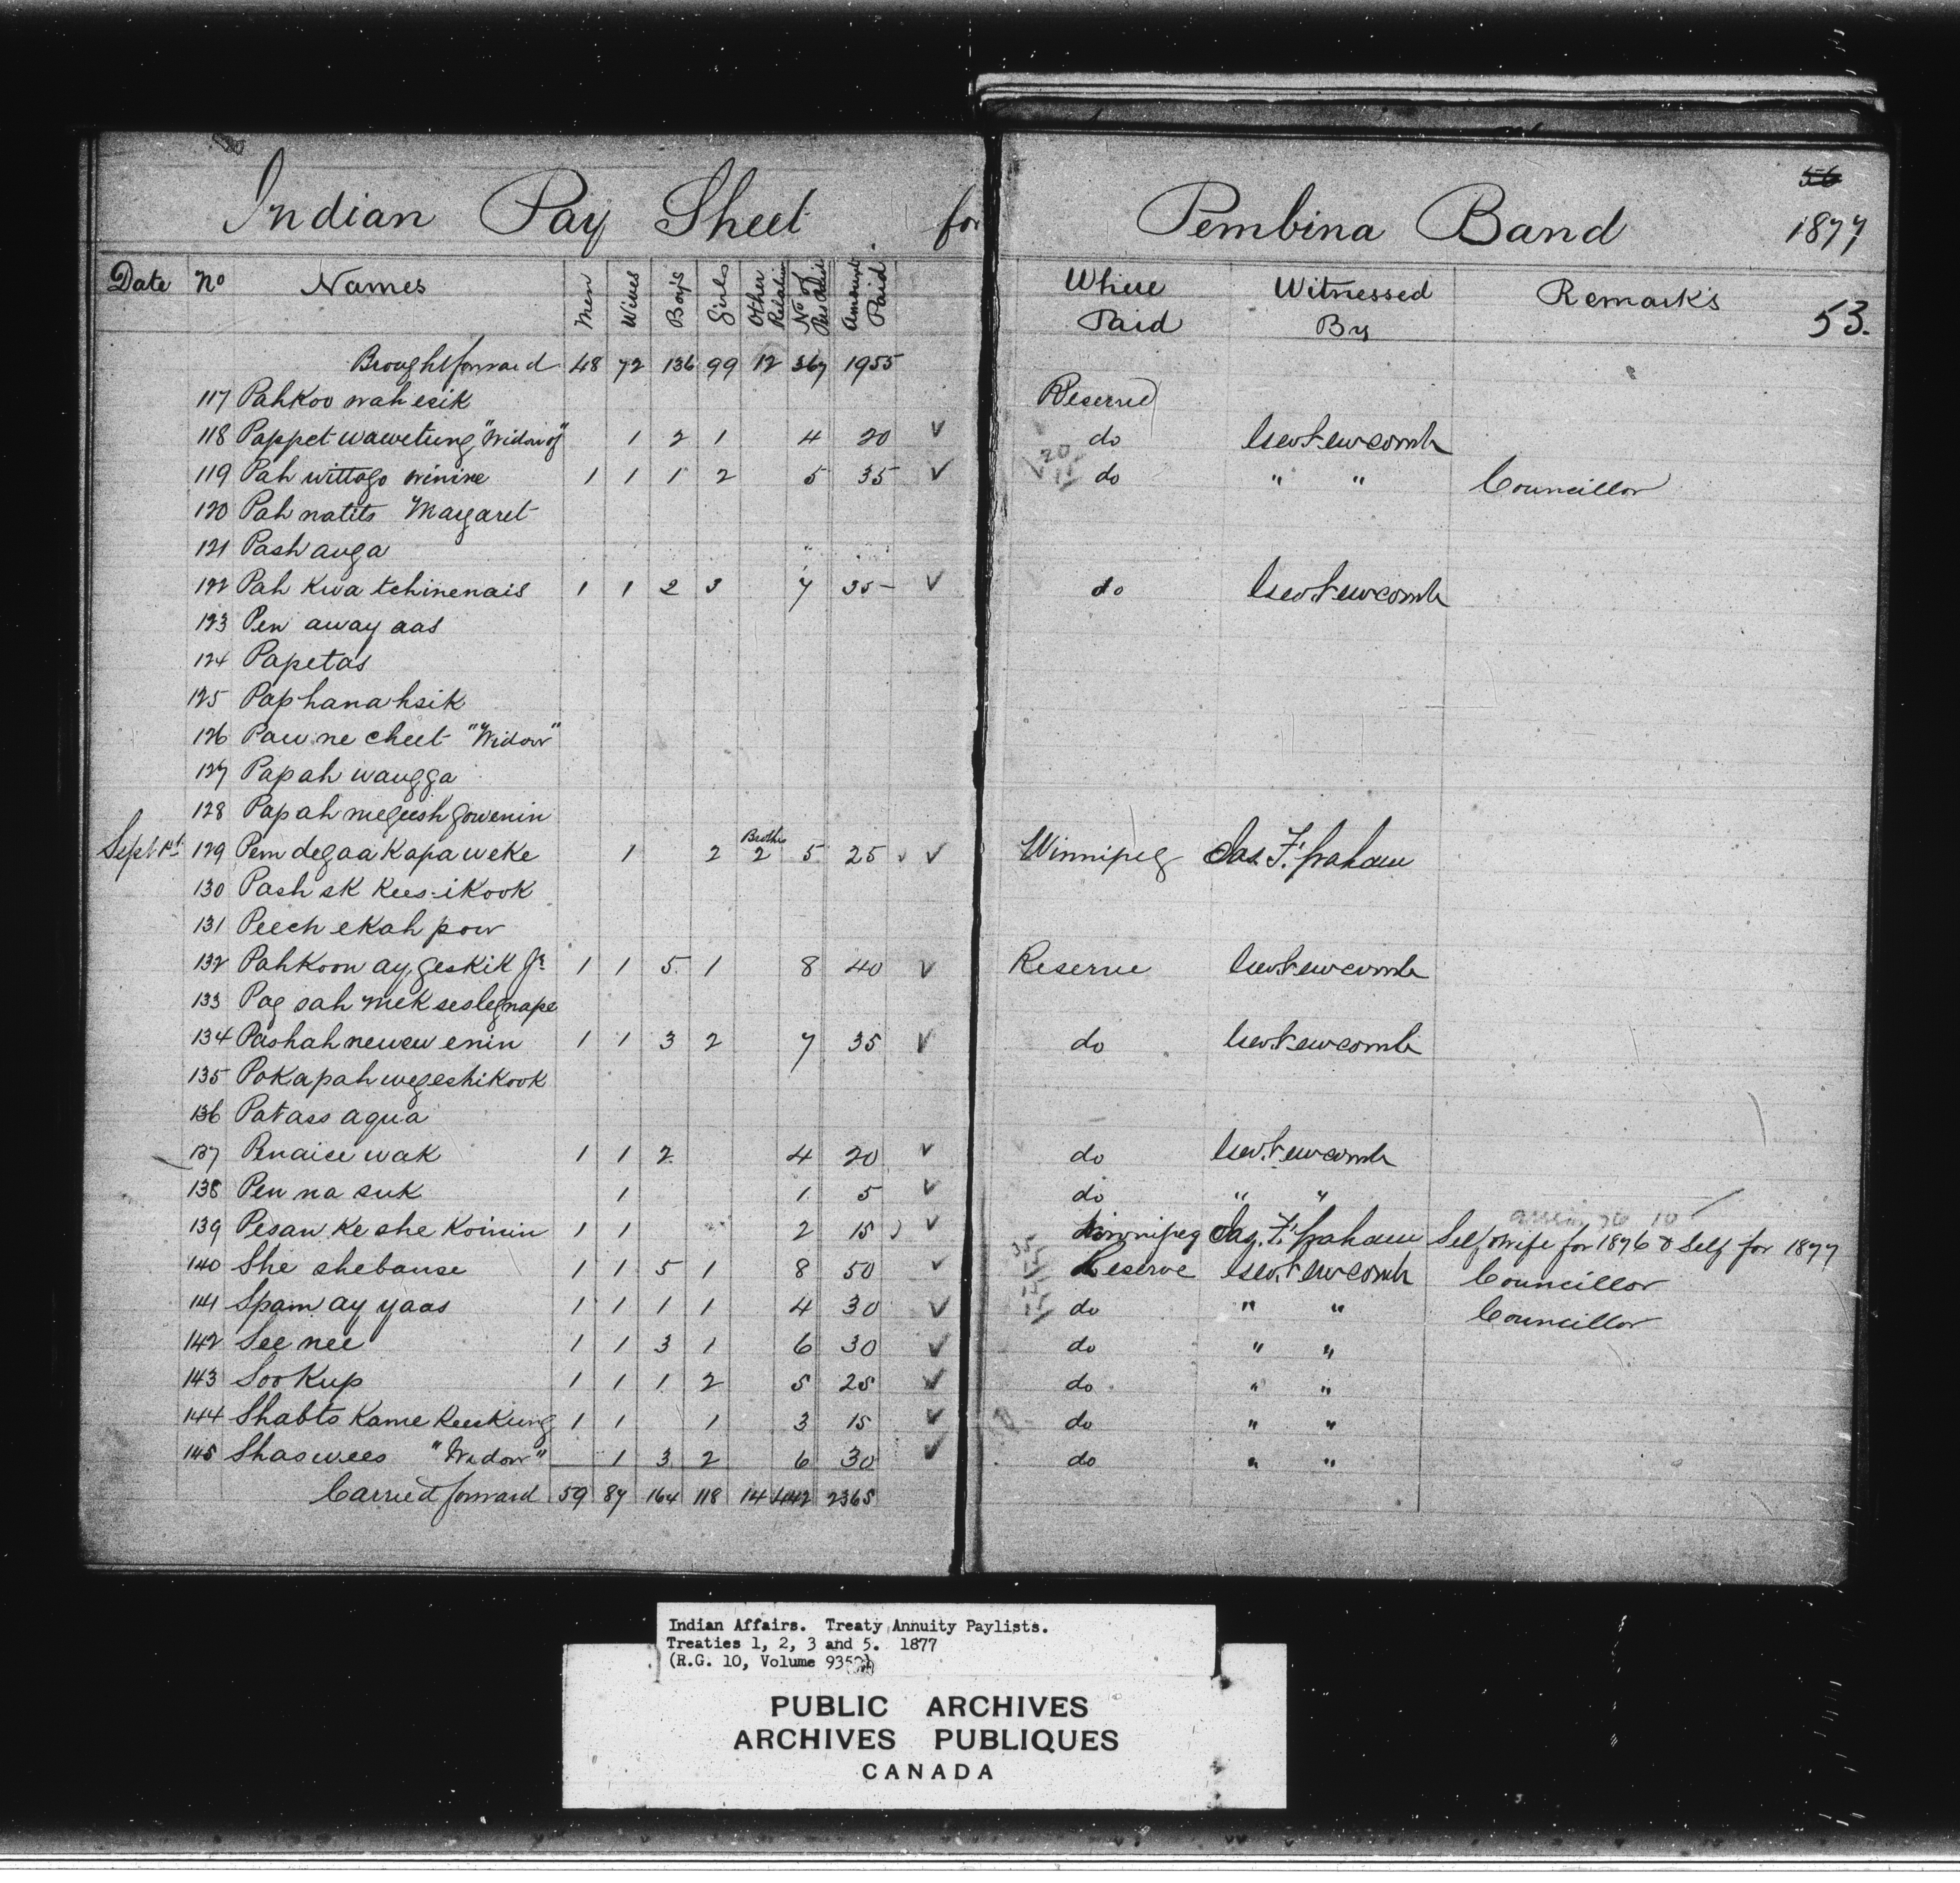 56
Indian Pay Sheet for Pembina Band 1877
53.
Date No Names Men Wives Boys Girls Other Relatives No of Pers Paid Amount Paid Where Paid Witnessed By Remarks
Brought forward 48 72 136 99 12 367 1955
117 Pahkoo wah esik Reserve
118 Pappet wawetung "Widow of" 1 2 1 4 20 ✓ do Geo Newcomb
119 Pah wittogo winine 1 1 1 2 5 35 ✓ 20 15 do " " Councillor
120 Pah natits Margaret
121 Pash auga
122 Pah kwa tchinenais 1 1 2 3 7 35 ✓ do Geo Newcomb
123 Pen away aas
124 Papetas
125 Paphanahsik
126 Paw ne cheet "Widow"
127 Papah waugga
128 Papah megeesh gowenin
Sept 1st 129 Pem degaa kapa weke 1 2 Brothers 2 5 25 ✓ Winnipeg Jas. F. Graham
130 Pash sk kees-ikook
131 Peech ekah pow
132 Pahkoon ay geskik Jr 1 1 5 1 8 40 ✓ Reserve Geo Newcomb
133 Pag sah mek seslegnape
134 Pashah newew enin 1 1 3 2 7 35 ✓ do Geo Newcomb
135 Pokapah wegeshikook
136 Patass aqua
137 Penaise wak 1 1 2 4 20 ✓ do Geo. Newcomb
138 Pen na suk 1 1 5 ✓ do " "
139 Pesaw ke she koinin 1 1 2 15 ✓ Winnipeg Jas. F. Graham Self & Wife for 1876 & Self for 1877
140 She shebause 1 1 5 1 8 50 ✓ 35 15 Reserve Geo. Newcomb Councillor
141 Spam ay yaas 1 1 1 1 4 30 ✓ 15 15 do " " Councillor
142 See nee 1 1 3 1 6 30 ✓ do " "
143 Sookup 1 1 1 2 5 25 ✓ do " "
144 Shabto kame keeskung 1 1 1 3 15 ✓ do " "
145 Shaswees "Widow" 1 3 2 6 30 ✓ do " "
Carried forward 59 87 164 118 14 442 2365
Indian Affairs. Treaty Annuity Paylists.
Treaties 1, 2, 3 and 5. 1877
(R.G. 10, Volume 935
PUBLIC ARCHIVES
ARCHIVES PUBLIQUES
CANADA